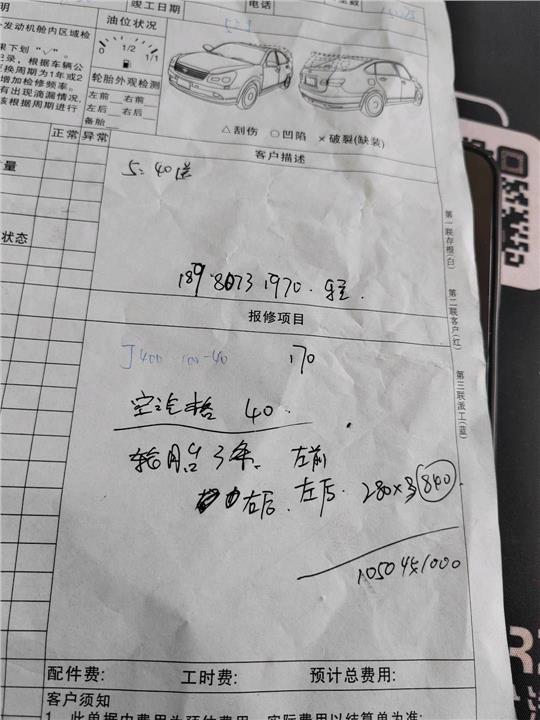 明
竣工日期
电话
-发动机舱内区域检
油位状况
0 1/2 1/1
果下划“√”。
记录，根据车辆公
更换周期为1年或2
增加检修频率。
有出现滴漏情况，
该根据周期进行
轮胎外观检测
左前 右前
左后 右后
备胎
△刮伤 ○凹陷 ×破裂(缺装)
正常 异常
客户描述
量
5:40送
第一联存根(白)
状态
报修项目
第二联客户(红)
J400 100-40 170
第三联派工(蓝)
空气格 40.
轮胎3条 左前
右后. 左后. 280×3 840
1050 收1000
配件费: 工时费: 预计总费用:
客户须知
1、此单据内费用为预估费用，实际费用以结算单为准;